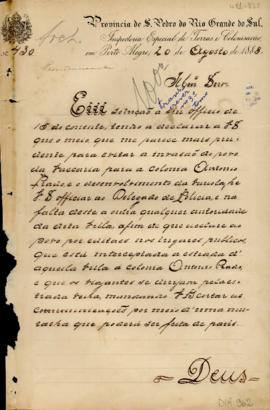 Provincia de S. Pedro do Rio Grande do Sul.
Inspetoria Especial de Terras e Colonisação
em Porto Alegre, 20 de Agosto de 1888.
Nº 430
Illm. Snr.
Em solução a seu officio de
15 do corrente, tenho a declarar a VS
que o meio que me parece mais pru-
dente para evitar a invasão do povo
da para a colonia Antonio
Prado e o desenvolvimento da é
VS officiar ao Delegado de Policia e na
falta deste a outra qualquer autoridade
da dita villa, afim de que
povo por editaes nos lugares publicos,
que está interceptada a estrada d'
aquella villa á colonia Antonio Prado,
e que os viajantes se dirijam pela es-
trada velha, mandando VS cortar as
communicações por meio d'uma mu-
ralha que poderá ser feita de páos.
Deus